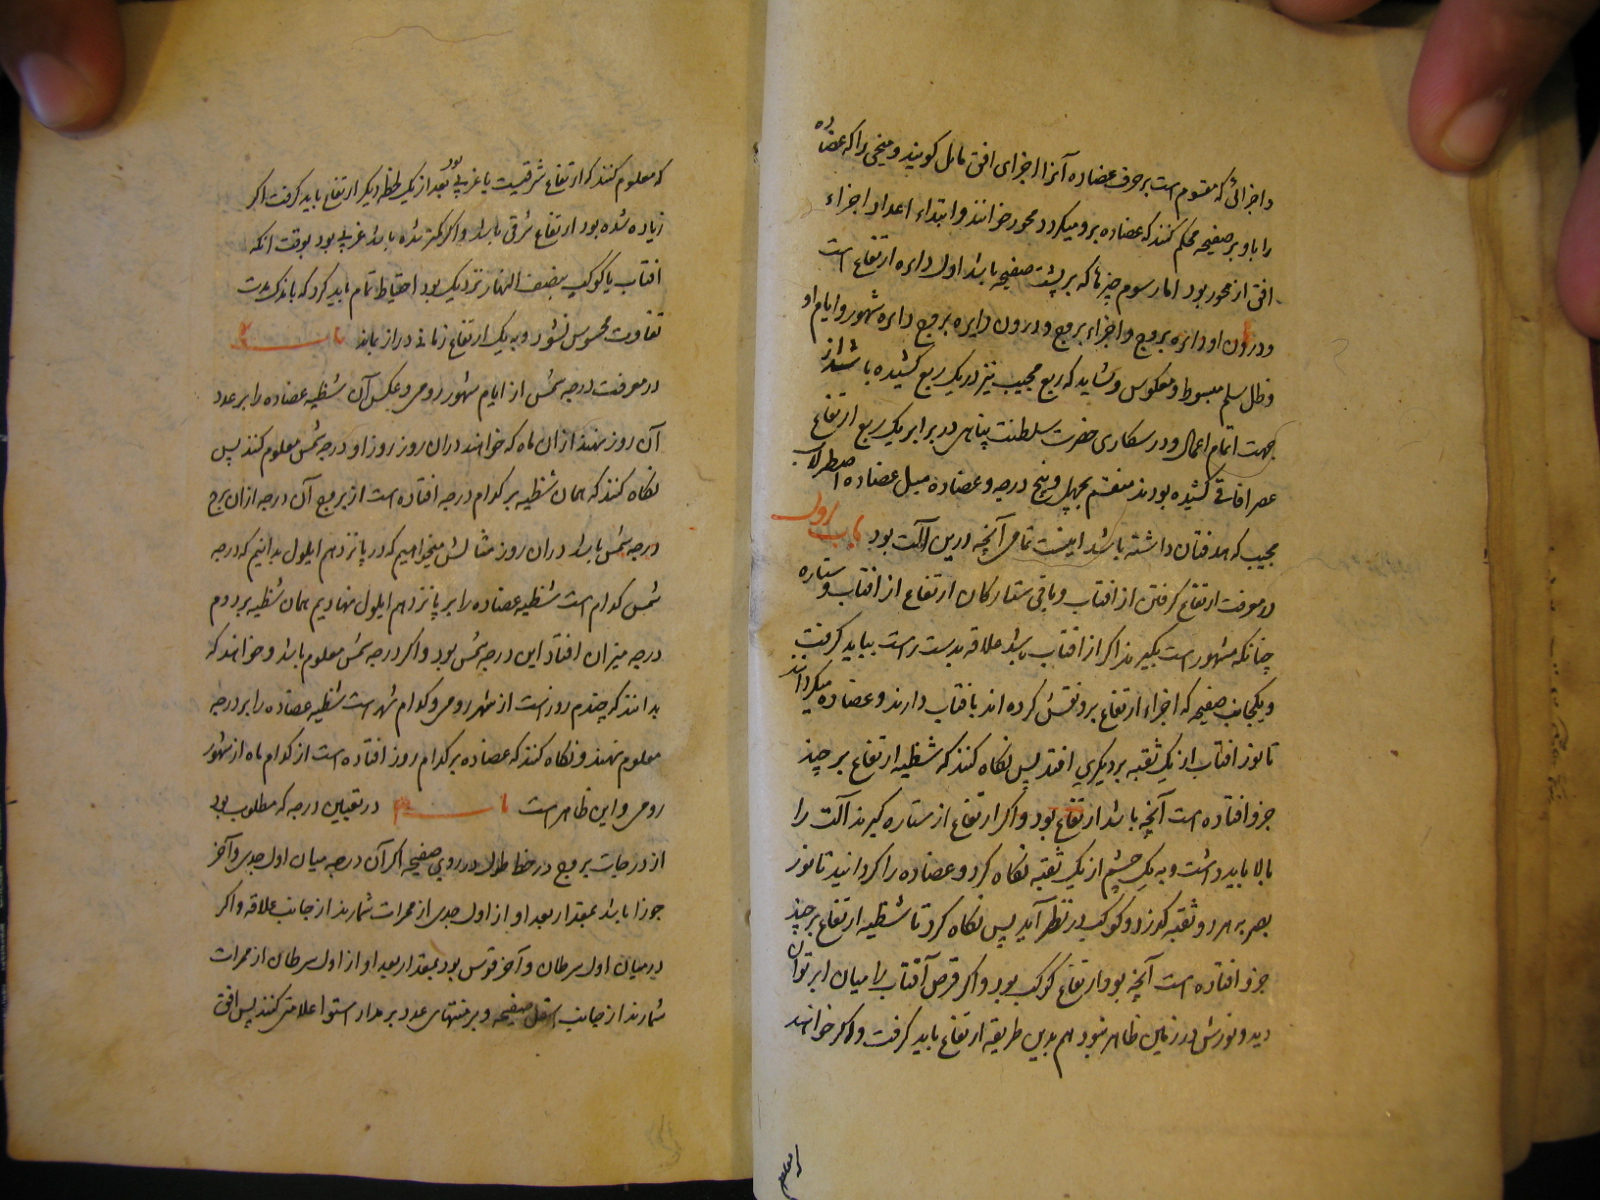 و اجزائی که مقسوم است بر حرف عضاده آنرا اجزای افق مایل کویند و میخی را که عضاده
را باو بر صفیحه محکم کنند که عضاده برو میکردد محور خوانند و ابتداء اعداد اجزاء
افق از محور بود اما رسوم چیزها که بر پشت صفیحه باشد اول دایره ارتفاع است
و درون او دایره بروج و اجزاء بروج و درون دایره بروج دایره شهور و ایام او
و ظل سلم مبسوط و معکوس و شاید که ربع مجیب نیز در یک ربع کشیده باشند از
جهت اتمام اعمال و در سکاری حضرت سلطنت پناهی در برابر یک ربع ارتفاع
عصر افاقی کشیده بودند منقسم بچهل و پنج درجه و عضاده میل عضاده اصطرلاب
مجیب که هدفتان داشته باشد اینست تمامی آنچه درین آلت بود باب اول
در معرفت ارتفاع کرفتن از افتاب و باقی ستارکان ارتفاع از افتاب و ستاره
چنانکه مشهور است بکیرند اکر از افتاب باشد علاقه بدست راست بباید کرفت
و یکجانب صفیحه که اجزاء ارتفاع برو نقش کرده اند بافتاب دارند و عضاده میکردانند
تا نور افتاب از یک ثقبه بر دیکری افتد پس نکاه کنند که شظیه ارتفاع بر چند
جزو افتاده است آنچه باشد ارتفاع بود و اکر ارتفاع از ستاره کیرند آلت را
بالا باید داشت و به یک چشم از یک ثقبه نکاه کرد و عضاده را کردانید تا نور
بصر بهر دو ثقبه کذرد و کوکب در نظر آید پس نکاه کرد تا شظیه ارتفاع بر چند
جزو افتاده است آنچه بود ارتفاع کوکب بود و اکر قرص آفتاب را میان ابر توان
دید و نورش در زمین ظاهر نبود هم بدین طریقه ارتفاع باید کرفت و اکر خواهند
که معلوم
که معلوم کنند که ارتفاع شرقیست یا غربی بود بعد از یک لحظه دیکر ارتفاع باید کرفت اکر
زیاده شده بود ارتفاع شرقی باشد و اکر کمتر شده باشد غربی بود بوقت انکه
افتاب یا کوکب بنصف النهار نزدیک بود احتیاط تمام باید کرد که باندک مدت
تفاوت محسوس نشود و به یک ارتفاع زمانی دراز بماند باب ۲
در معرفت درجه شمس از ایام شهور رومی و عکس آن شظیه عضاده را بر عدد
آن روز نهند ازان ماه که خواهند دران روز روز او درجه شمس معلوم کنند پس
نکاه کنند که همان شظیه بر کدام درجه افتاده است از بروج آن درجه ازان برج
درجه شمس باشد دران روز مثالش میخواهیم که در پانزدهم ایلول بدانیم که درجه
شمس کدام است شظیه عضاده را بر پانزدهم ایلول نهادیم همان شظیه بر دوم
درجه میزان افتاد این درجه شمس بود و اکر درجه شمس معلوم باشد و خواهند که
بدانند که چندم روز است از شهر رومی و کدام شهر است شظیه عضاده را بر درجه
معلوم نهند و نکاه کنند که عضاده بر کدام روز افتاده است از کدام ماه از شهور
رومی و این ظاهر است باب ۳ در تعیین درجه که مطلوب بود
از درجات بروج در خط طول در روی صفیحه اکر آن درجه میان اول جدی و آخر
جوزا باشد بمقدار بعد او از اول جدی از ممرات شمارند از جانب علاقه و اکر
در میان اول سرطان و آخر قوس بود بمقدار بعد او از اول سرطان از ممرات
شمارند از جانب اسفل صفیحه و بر منتهای عدد بر مدار استوا علامتی کنند پس افق